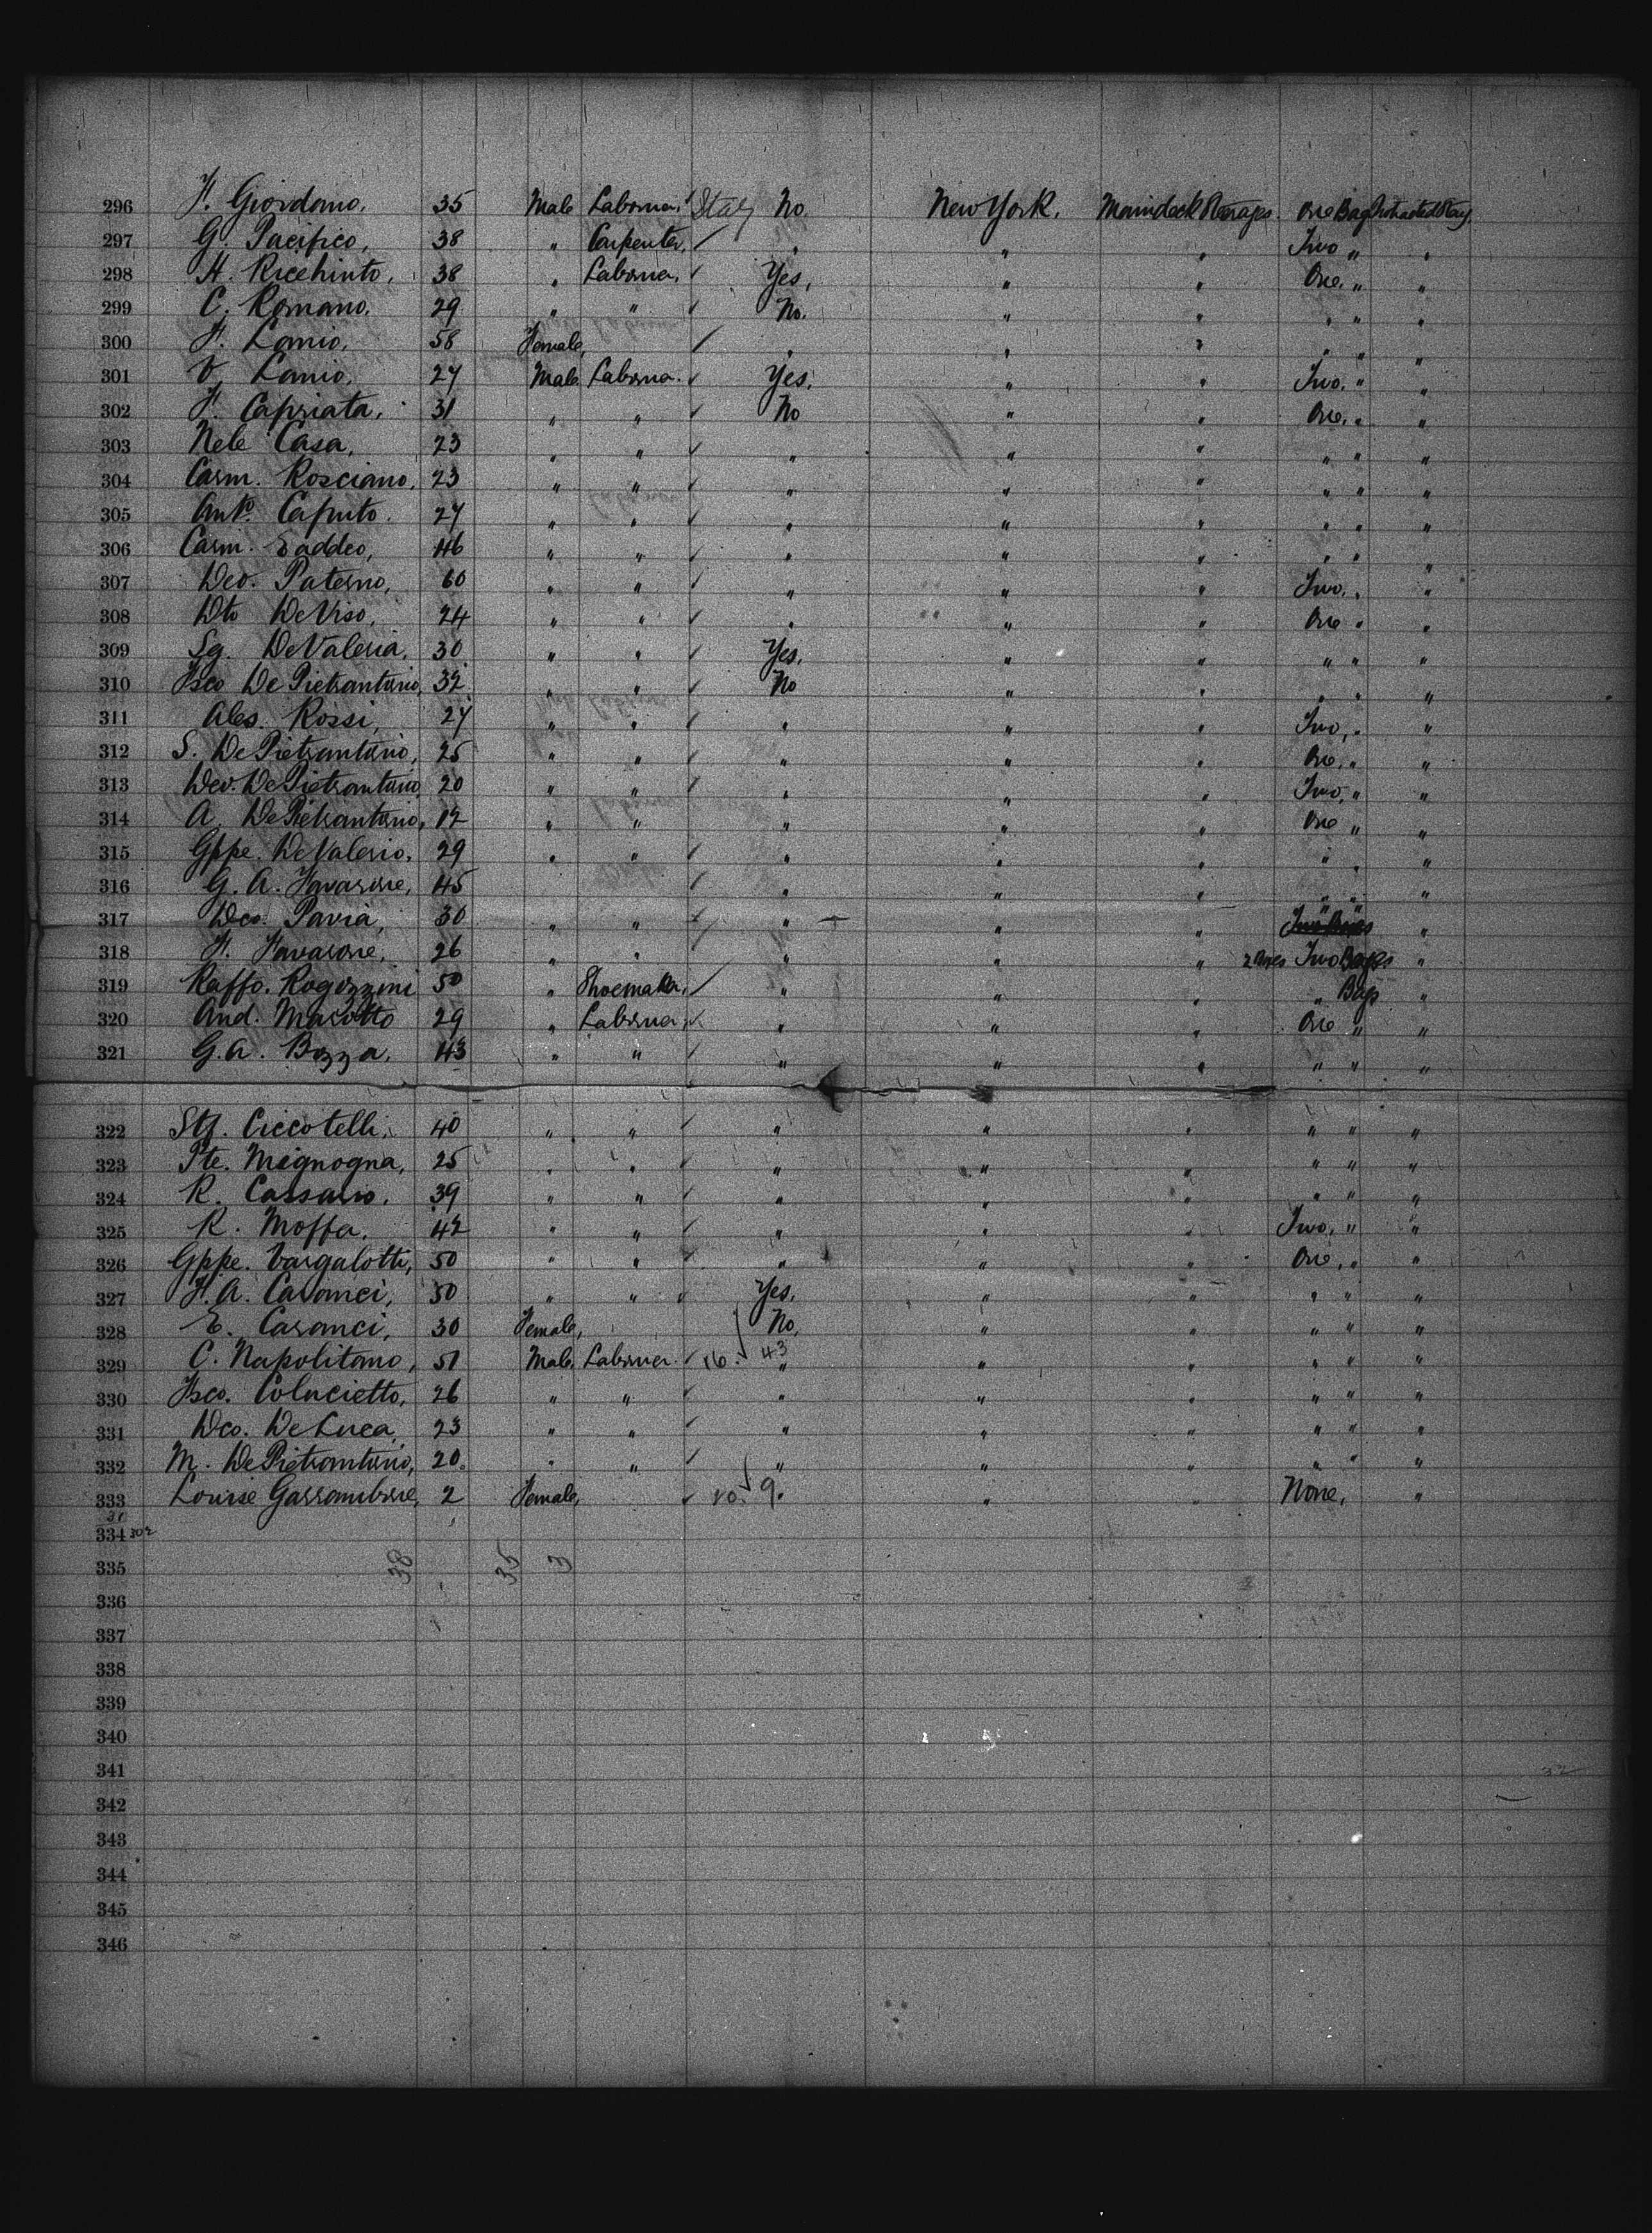 296 F. Giordano, 35 Male Laborer, Italy No. New York. Maindeck Steerages. One Bag Protracted Stay
297 G. Pacifico, 38 " Carpenter, " " " Two " "
298 A. Ricchiuto, 38 " Laborer, Yes, " " One, " "
299 C. Romano, 29 " " No. " " " " "
300 F. Lomio, 58 Female, " " " " " "
301 V. Lomio, 27 Male Laborer. Yes, " " Two, " "
302 F. Capriata, 31 " " No " " One, " "
303 Nele Casa, 23 " " " " " " " "
304 Carm. Rosciano, 23 " " " " " " " "
305 Anto. Caputo. 27 " " " " " " " "
306 Carm. Taddeo, 46 " " " " " " " "
307 Deo. Paterno, 60 " " " " " Two, " "
308 Dto De Viso, 24 " " " " " One " "
309 Lg. De Valeria, 30 " " Yes, " " " " "
310 Fsco De Pietrantonio, 32 " " No " " " " "
311 Ales. Rossi, 27 " " " " " Two, " "
312 S. De Pietrantonio, 25 " " " " " One, " "
313 Deo. De Pietrantonio 20 " " " " " Two, " "
314 A. De Pietrantonio, 12 " " " " " One " "
315 Gppe. De Valerio, 29 " " " " " " " "
316 G. A. Favarone, 45 " " " " " "
317 Dco. Pavia, 30 " " " " " "
318 F. Favarone, 26 " " " " " 2 Boxes Two Bags "
319 Raffo. Rogozzini 50 " Shoemaker, " " " " Bags "
320 And. Masotto 29 " Laborer, " " " One " "
321 G. A. Bozza, 43 " " " " " " " "
322 Stf. Ciccotelli, 40 " " " " " " " "
323 Pte. Mignogna, 25 " " " " " " " "
324 R. Cassario, 39 " " " " " " " "
325 R. Moffa, 42 " " " " " Two, " "
326 Gppe. Vargalotti, 50 " " " " " One, " "
327 F. A. Casanci, 50 " " Yes, " " " " "
328 E. Casanci, 30 Female, No, " " " " "
329 C. Napolitano, 51 Male Laborer. 16. 43 " " " " " "
330 Fsco. Colucietto, 26 " " " " " " " "
331 Dco. De Luca, 23 " " " " " " " "
332 M. De Pietrantonio, 20. " " " " " " " "
333 Louise Garrambone, 2 Female, 10. 9. " " None, "
31
334 302
335 38 35 3
336
337
338
339
340
341 32
342
343
344
345
346